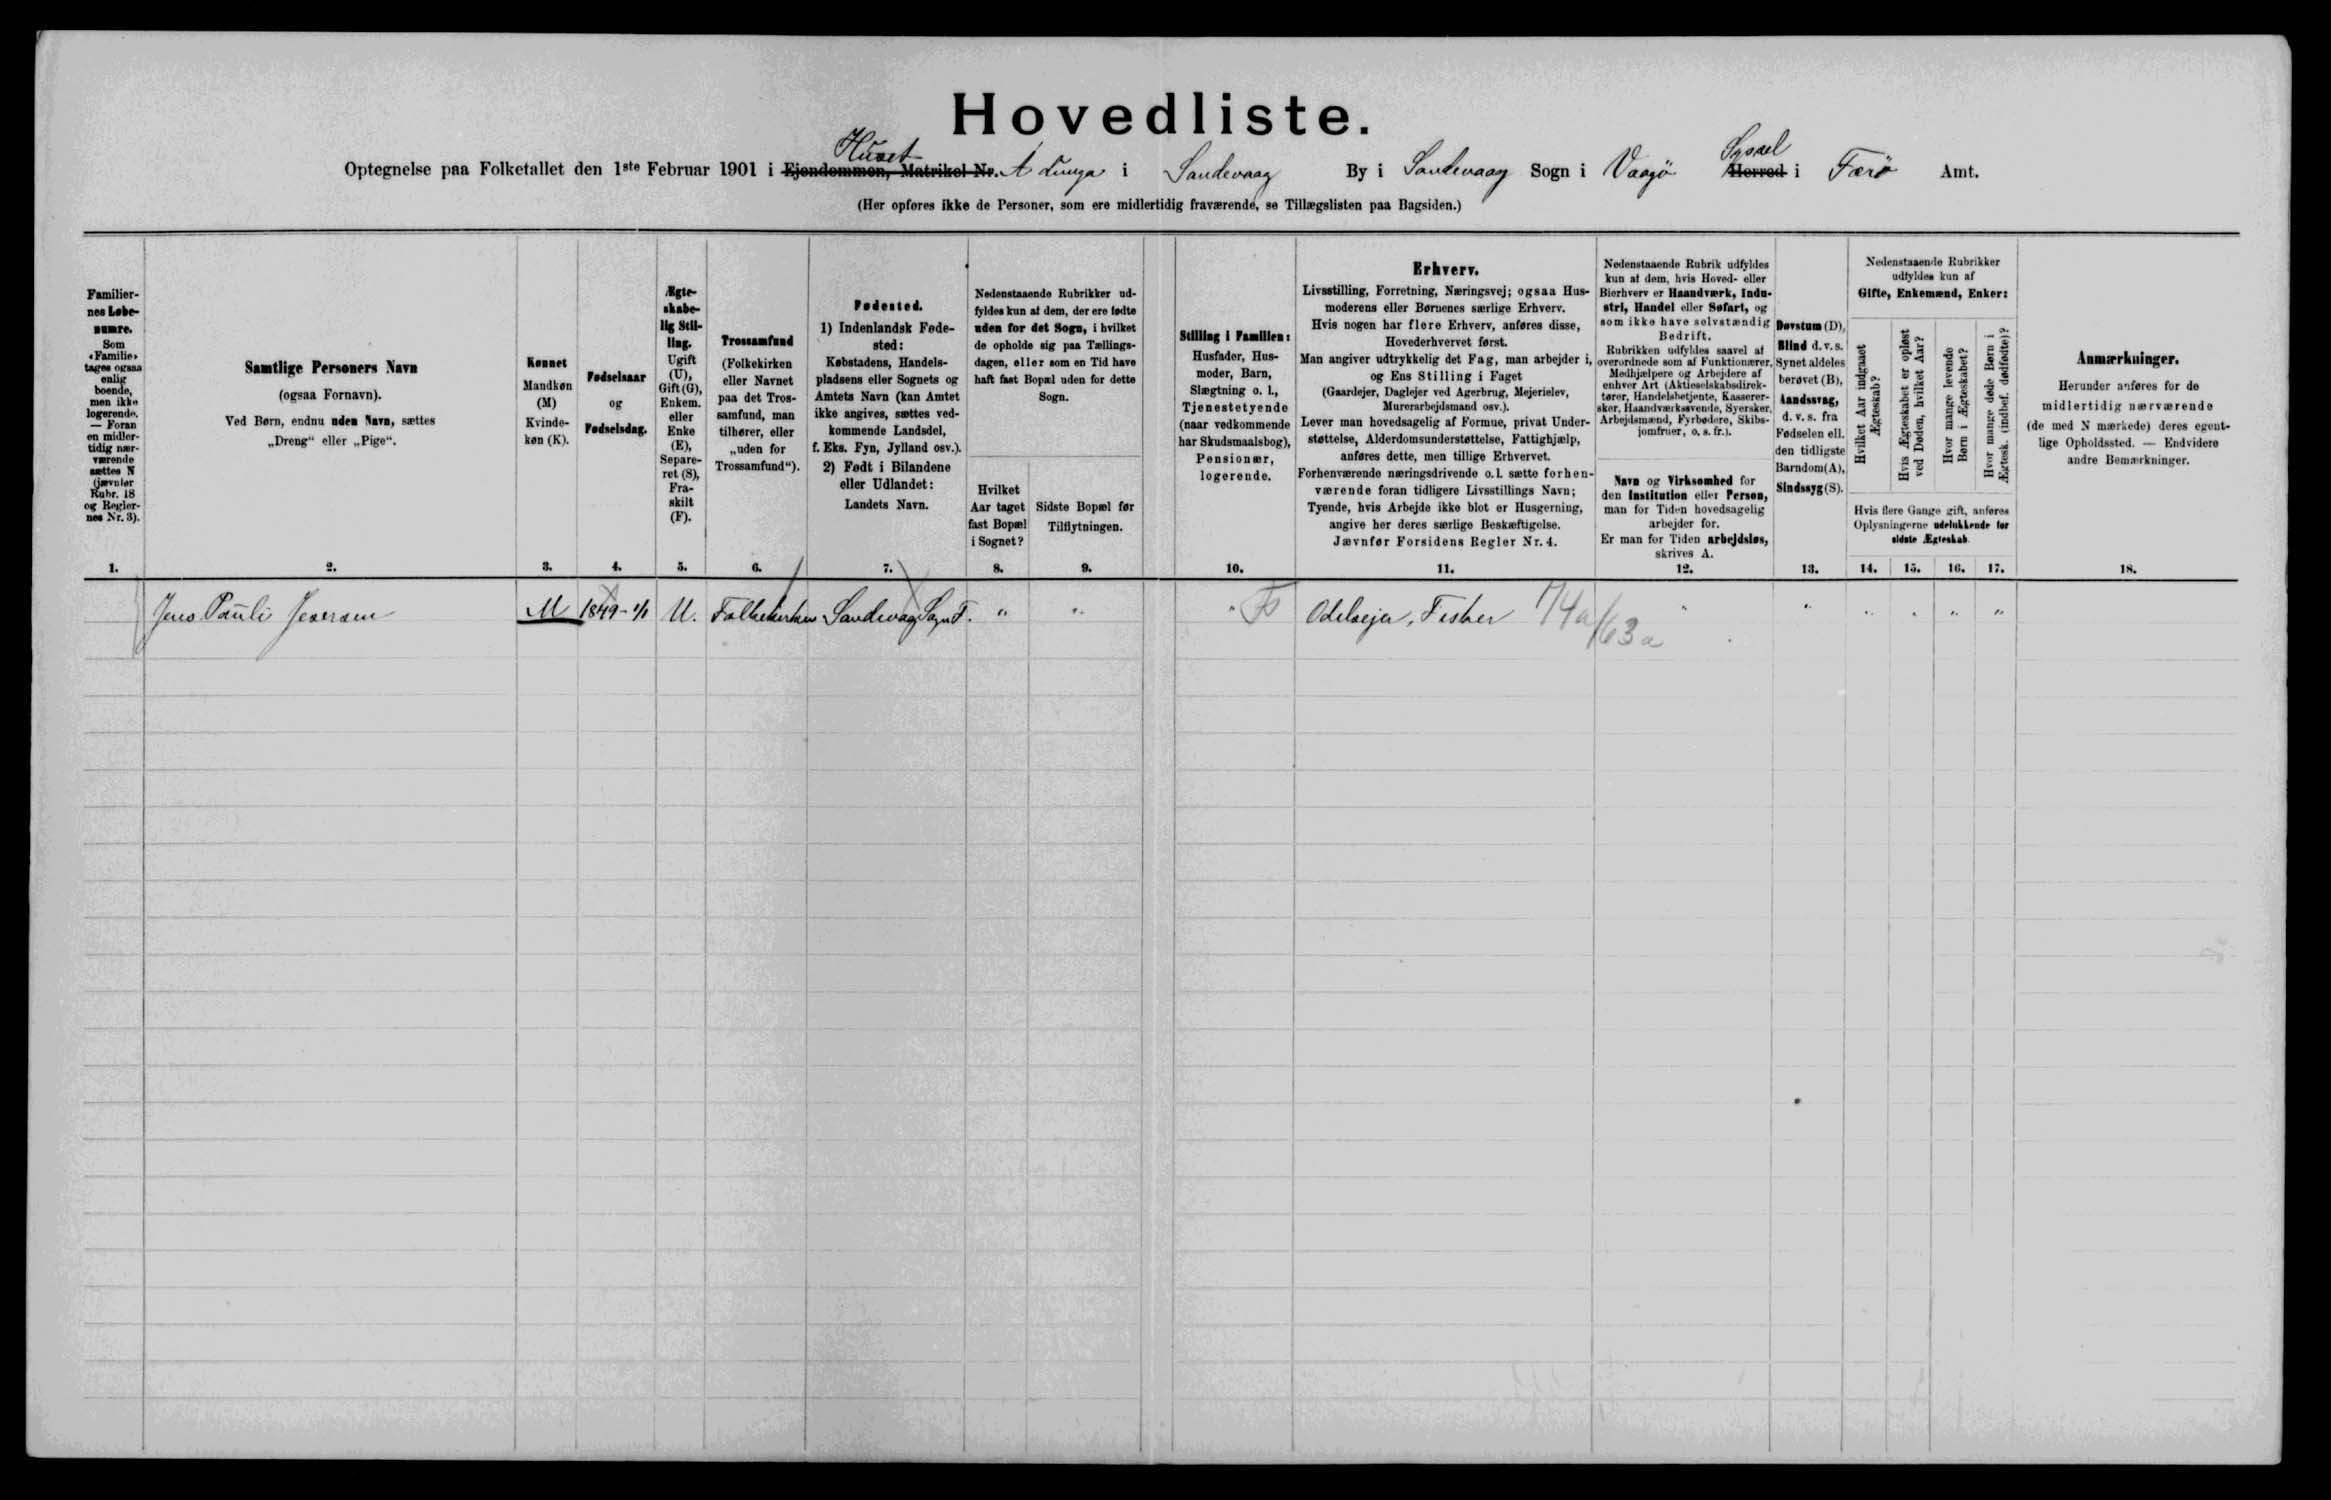 Hovedliste.
Huset
Syssel
Optegnelse paa Folketallet den 1ste Februar 1901 i Ejendommen, Matrikel Nr. i Sandevaag By i Sandevaag Sogn i Vaagø Herred i Færø Amt.
(Her opføres ikke de Personer, som ere midlertidig fraværende, se Tillægslisten paa Bagsiden.)
Familier-
nes Løbe-
numre.
Som
«Familie»
tages ogsaa
enlig
boende,
men ikke
logerende.
— Foran
en midler-
tidig nær-
værende
sættes N
(jævnfør
Rubr. 18
og Regler-
nes Nr. 3).
1.
Samtlige Personers Navn
(ogsaa Fornavn).
Ved Børn, endnu uden Navn, sættes
„Dreng“ eller „Pige“.
2.
Kønnet
Mandkøn
(M)
Kvinde-
køn (K).
3.
Fødselsaar
og
Fødselsdag.
4.
Ægte-
skabe-
lig Stil-
ling.
Ugift
(U),
Gift (G),
Enkem.
eller
Enke
(E),
Separe-
ret (S),
Fra-
skilt
(F).
5.
Trossamfund
(Folkekirken
eller Navnet
paa det Tros-
samfund, man
tilhører, eller
„uden for
Trossamfund“).
6.
Fødested.
1) Indenlandsk Føde-
sted:
Købstadens, Handels-
pladsens eller Sognets og
Amtets Navn (kan Amtet
ikke angives, sættes ved-
kommende Landsdel,
f. Eks. Fyn, Jylland osv.).
2) Født i Bilandene
eller Udlandet:
Landets Navn.
7.
Nedenstaaende Rubrikker ud-
fyldes kun af dem, der ere fødte
uden for det Sogn, i hvilket
de opholde sig paa Tællings-
dagen, eller som en Tid have
haft fast Bopæl uden for dette
Sogn.
Hvilket
Aar taget
fast Bopæl
i Sognet?
8.
Sidste Bopæl før
Tilflytningen.
9.
Stilling i Familien:
Husfader, Hus-
moder, Barn,
Slægtning o. l.,
Tjenestetyende
(naar vedkommende
har Skudsmaalsbog),
Pensionær,
logerende.
10.
Erhverv.
Livsstilling, Forretning, Næringsvej; ogsaa Hus-
moderens eller Børnenes særlige Erhverv.
Hvis nogen har flere Erhverv, anføres disse,
Hovederhvervet først.
Man angiver udtrykkelig det Fag, man arbejder i,
og Ens Stilling i Faget
(Gaardejer, Daglejer ved Agerbrug, Mejerielev,
Murerarbejdsmand osv.).
Lever man hovedsagelig af Formue, privat Under-
støttelse, Alderdomsunderstøttelse, Fattighjælp,
anføres dette, men tillige Erhvervet.
Forhenværende næringsdrivende o. l. sætte forhen-
værende foran tidligere Livsstillings Navn;
Tyende, hvis Arbejde ikke blot er Husgerning,
angive her deres særlige Beskæftigelse.
Jævnfør Forsidens Regler Nr. 4.
11.
Nedenstaaende Rubrik udfyldes
kun af dem, hvis Hoved- eller
Bierhverv er Haandværk, Indu-
stri, Handel eller Søfart, og
som ikke have selvstændig
Bedrift.
Rubrikken udfyldes saavel af
overordnede som af Funktionærer,
Medhjælpere og Arbejdere af
enhver Art (Aktieselskabsdirek-
tører, Handelsbetjente, Kasserer-
sker, Haandværkssvende, Syersker,
Arbejdsmænd, Fyrbødere, Skibs-
jomfruer, o. s. fr.).
Navn og Virksomhed for
den Institution eller Person,
man for Tiden hovedsagelig
arbejder for.
Er man for Tiden arbejdsløs,
skrives A.
12.
Døvstum (D),
Blind d. v. s.
Synet aldeles
berøvet (B),
Aandssvag,
d. v. s. fra
Fødselen ell.
den tidligste
Barndom (A),
Sindssyg (S).
13.
Nedenstaaende Rubrikker
udfyldes kun af
Gifte, Enkemænd, Enker:
Hvilket Aar indgaaet
Ægteskab?
Hvis Ægteskabet er opløst
ved Døden, hvilket Aar?
Hvor mange levende
Børn i Ægteskabet?
Hvor mange døde Børn i
Ægtesk. (indbef. dødfødte)?
Hvis flere Gange gift, anføres
Oplysningerne udelukkende for
sidste Ægteskab.
14. 15. 16. 17.
Anmærkninger.
Herunder anføres for de
midlertidig nærværende
(de med N mærkede) deres egent-
lige Opholdssted. — Endvidere
andre Bemærkninger.
18.
Jens Pauli Jensen M 1849-1/1 U. Folkekirken Sandevaag Sogn F. " " " Odelsejer, Fisker " " " " " "